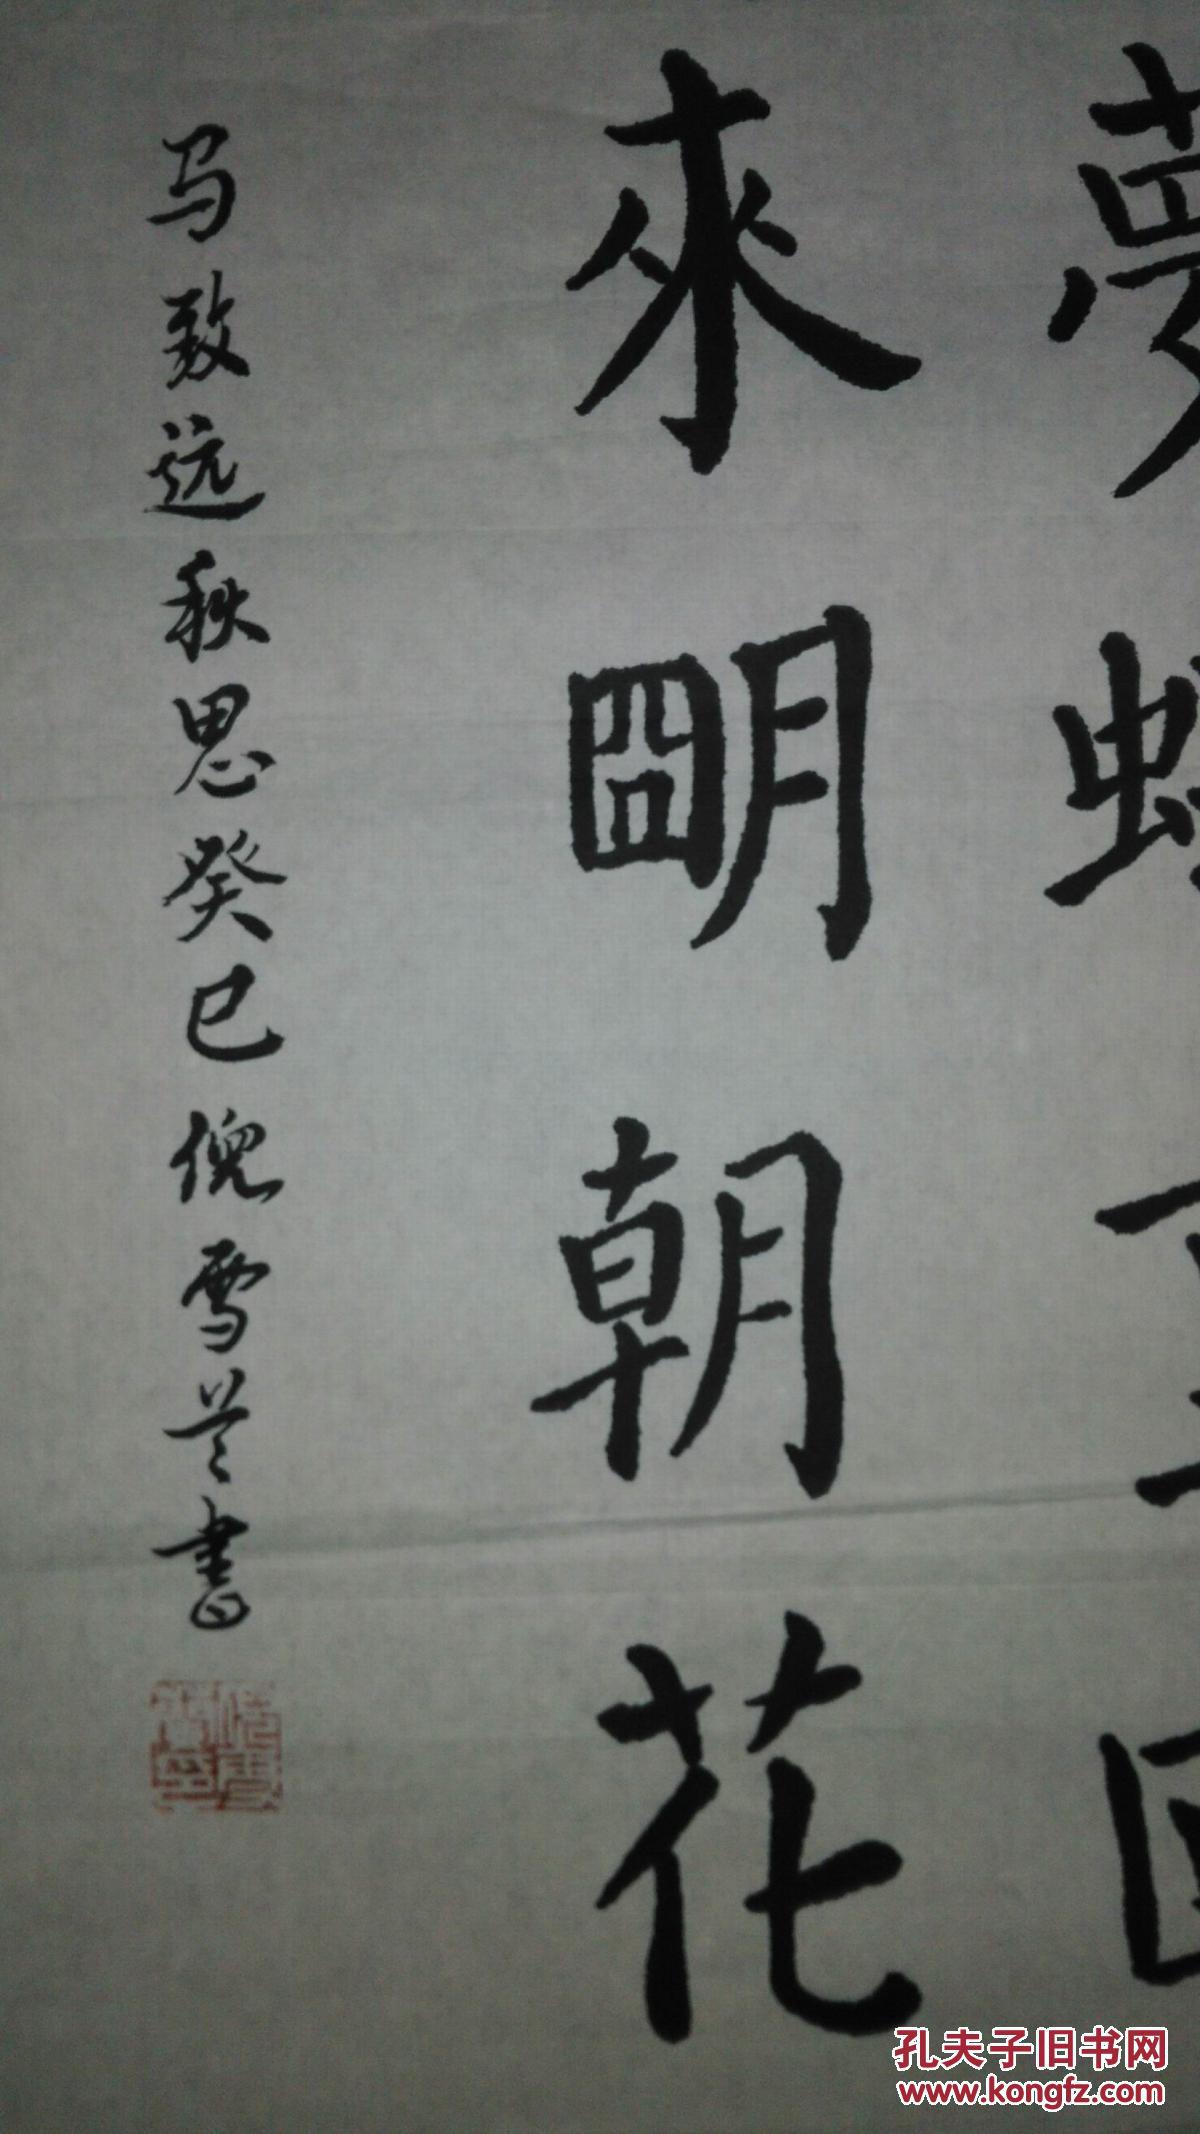 夢
來明朝花
马致远秋思癸巳倪雪兰書
孔夫子旧书网
www.kongfz.com